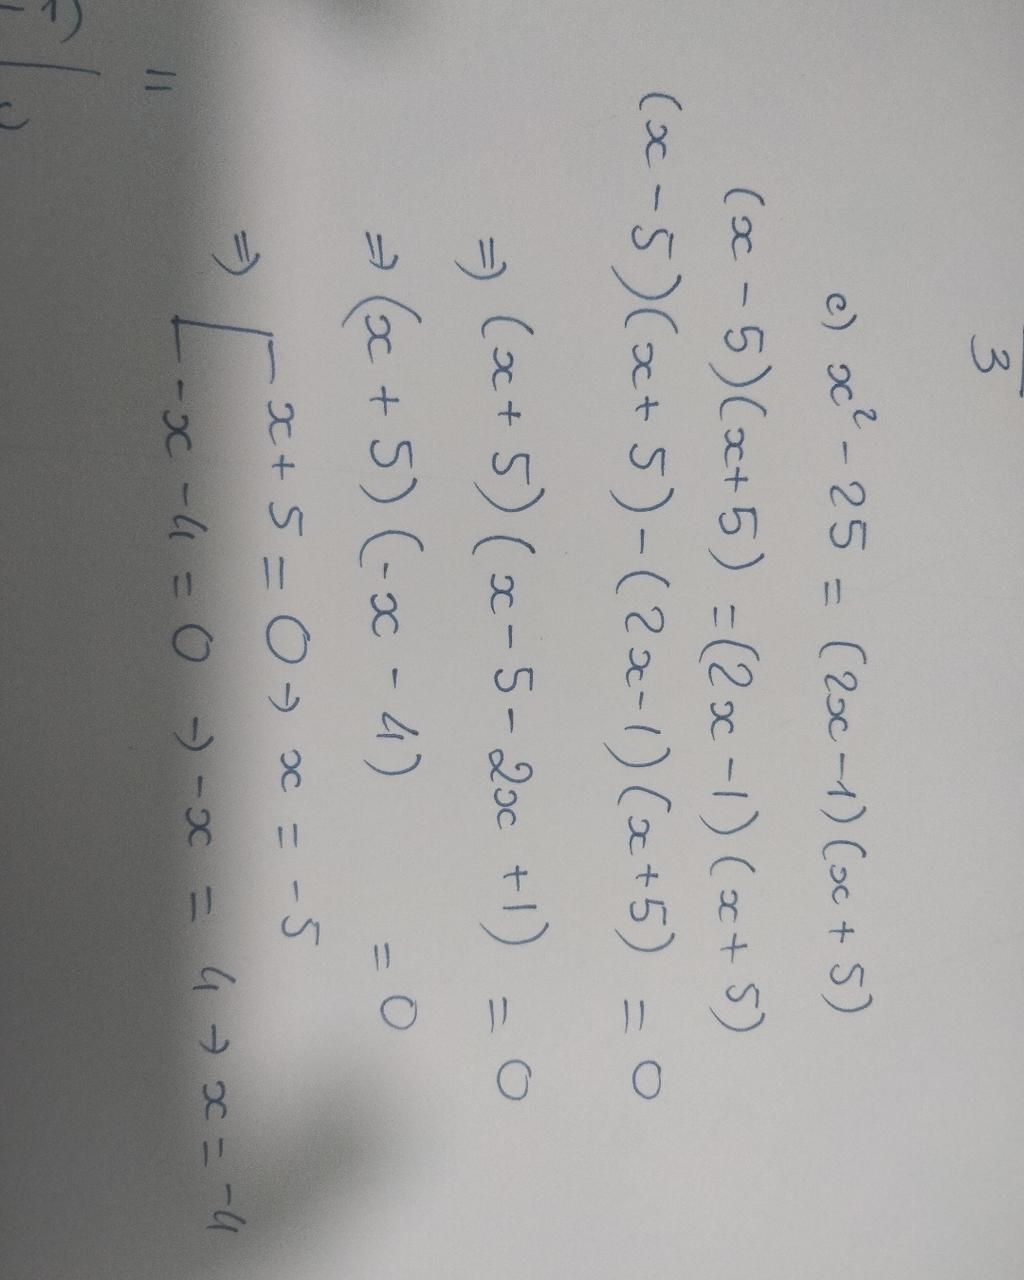 3
c) x² - 25 = (2x - 1)(x + 5)
(x - 5)(x + 5) = (2x - 1)(x + 5)
(x - 5)(x + 5) - (2x - 1)(x + 5) = 0
⇒ (x + 5)(x - 5 - 2x + 1) = 0
⇒ (x + 5)(-x - 4) = 0
⇒ [ x + 5 = 0 → x = -5
[ -x - 4 = 0 → -x = 4 → x = -4
=